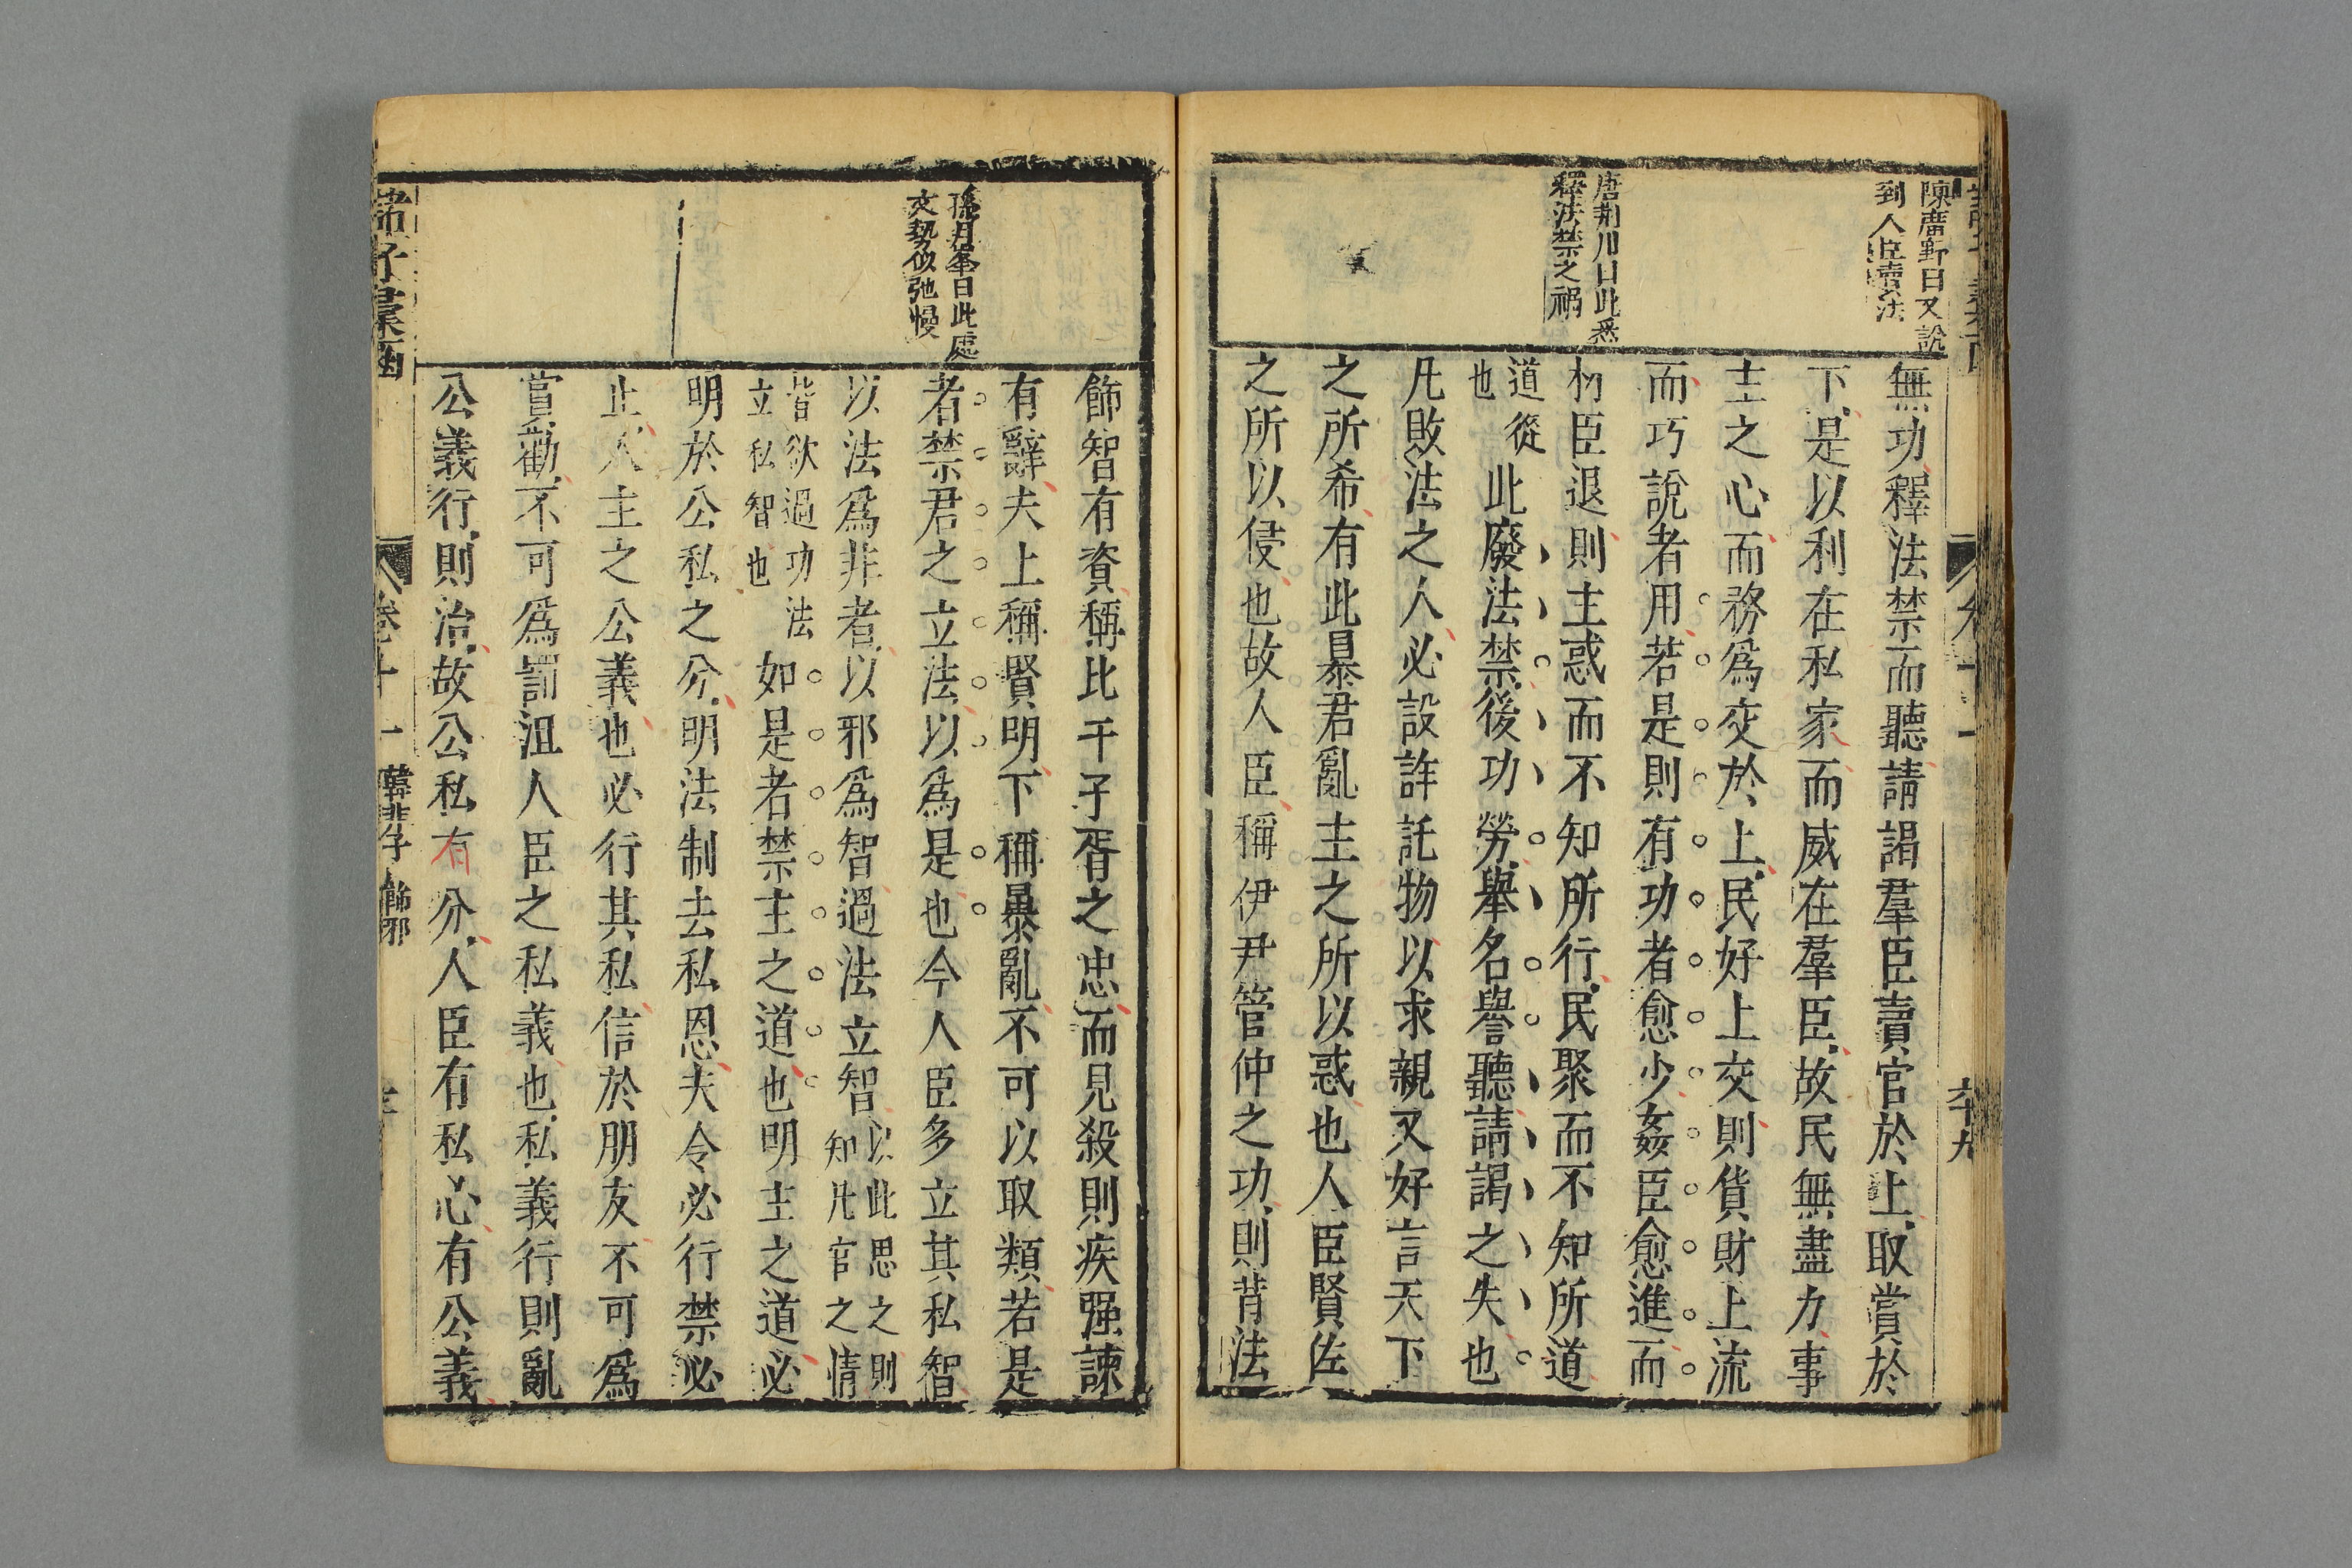 陳廣野曰又說
到人臣賣法
唐荆川曰此悉
釋法禁之禍
無功釋法禁而聽請謁羣臣賣官於上取賞於
下是以利在私家而威在羣臣故民無盡力事
主之心而務爲交於上民好上交則貨財上流
而巧說者用若是則有功者愈少姦臣愈進而
材臣退則主惑而不知所行民聚而不知所道
道從
也
此廢法禁後功勞舉名譽聽請謁之失也
凡敗法之人必設詐託物以求親又好言天下
之所希有此暴君亂主之所以惑也人臣賢佐
之所以侵也故人臣稱伊尹管仲之功則背法
孫月峯曰此處
文勢似弛慢
飾智有資稱比干子胥之忠而見殺則疾强諫
有辭夫上稱賢明下稱暴亂不可以取類若是
者禁君之立法以爲是也今人臣多立其私智
以法爲非者以邪爲智過法立智
以此思之則
知凡官之情
皆欲過功法
立私智也
如是者禁主之道也明主之道必
明於公私之分明法制去私恩夫令必行禁必
止人主之公義也必行其私信於朋友不可爲
賞勸不可爲罰沮人臣之私義也私義行則亂
公義行則治故公私有分人臣有私心有公義
卷十一
韓非子
飾邪